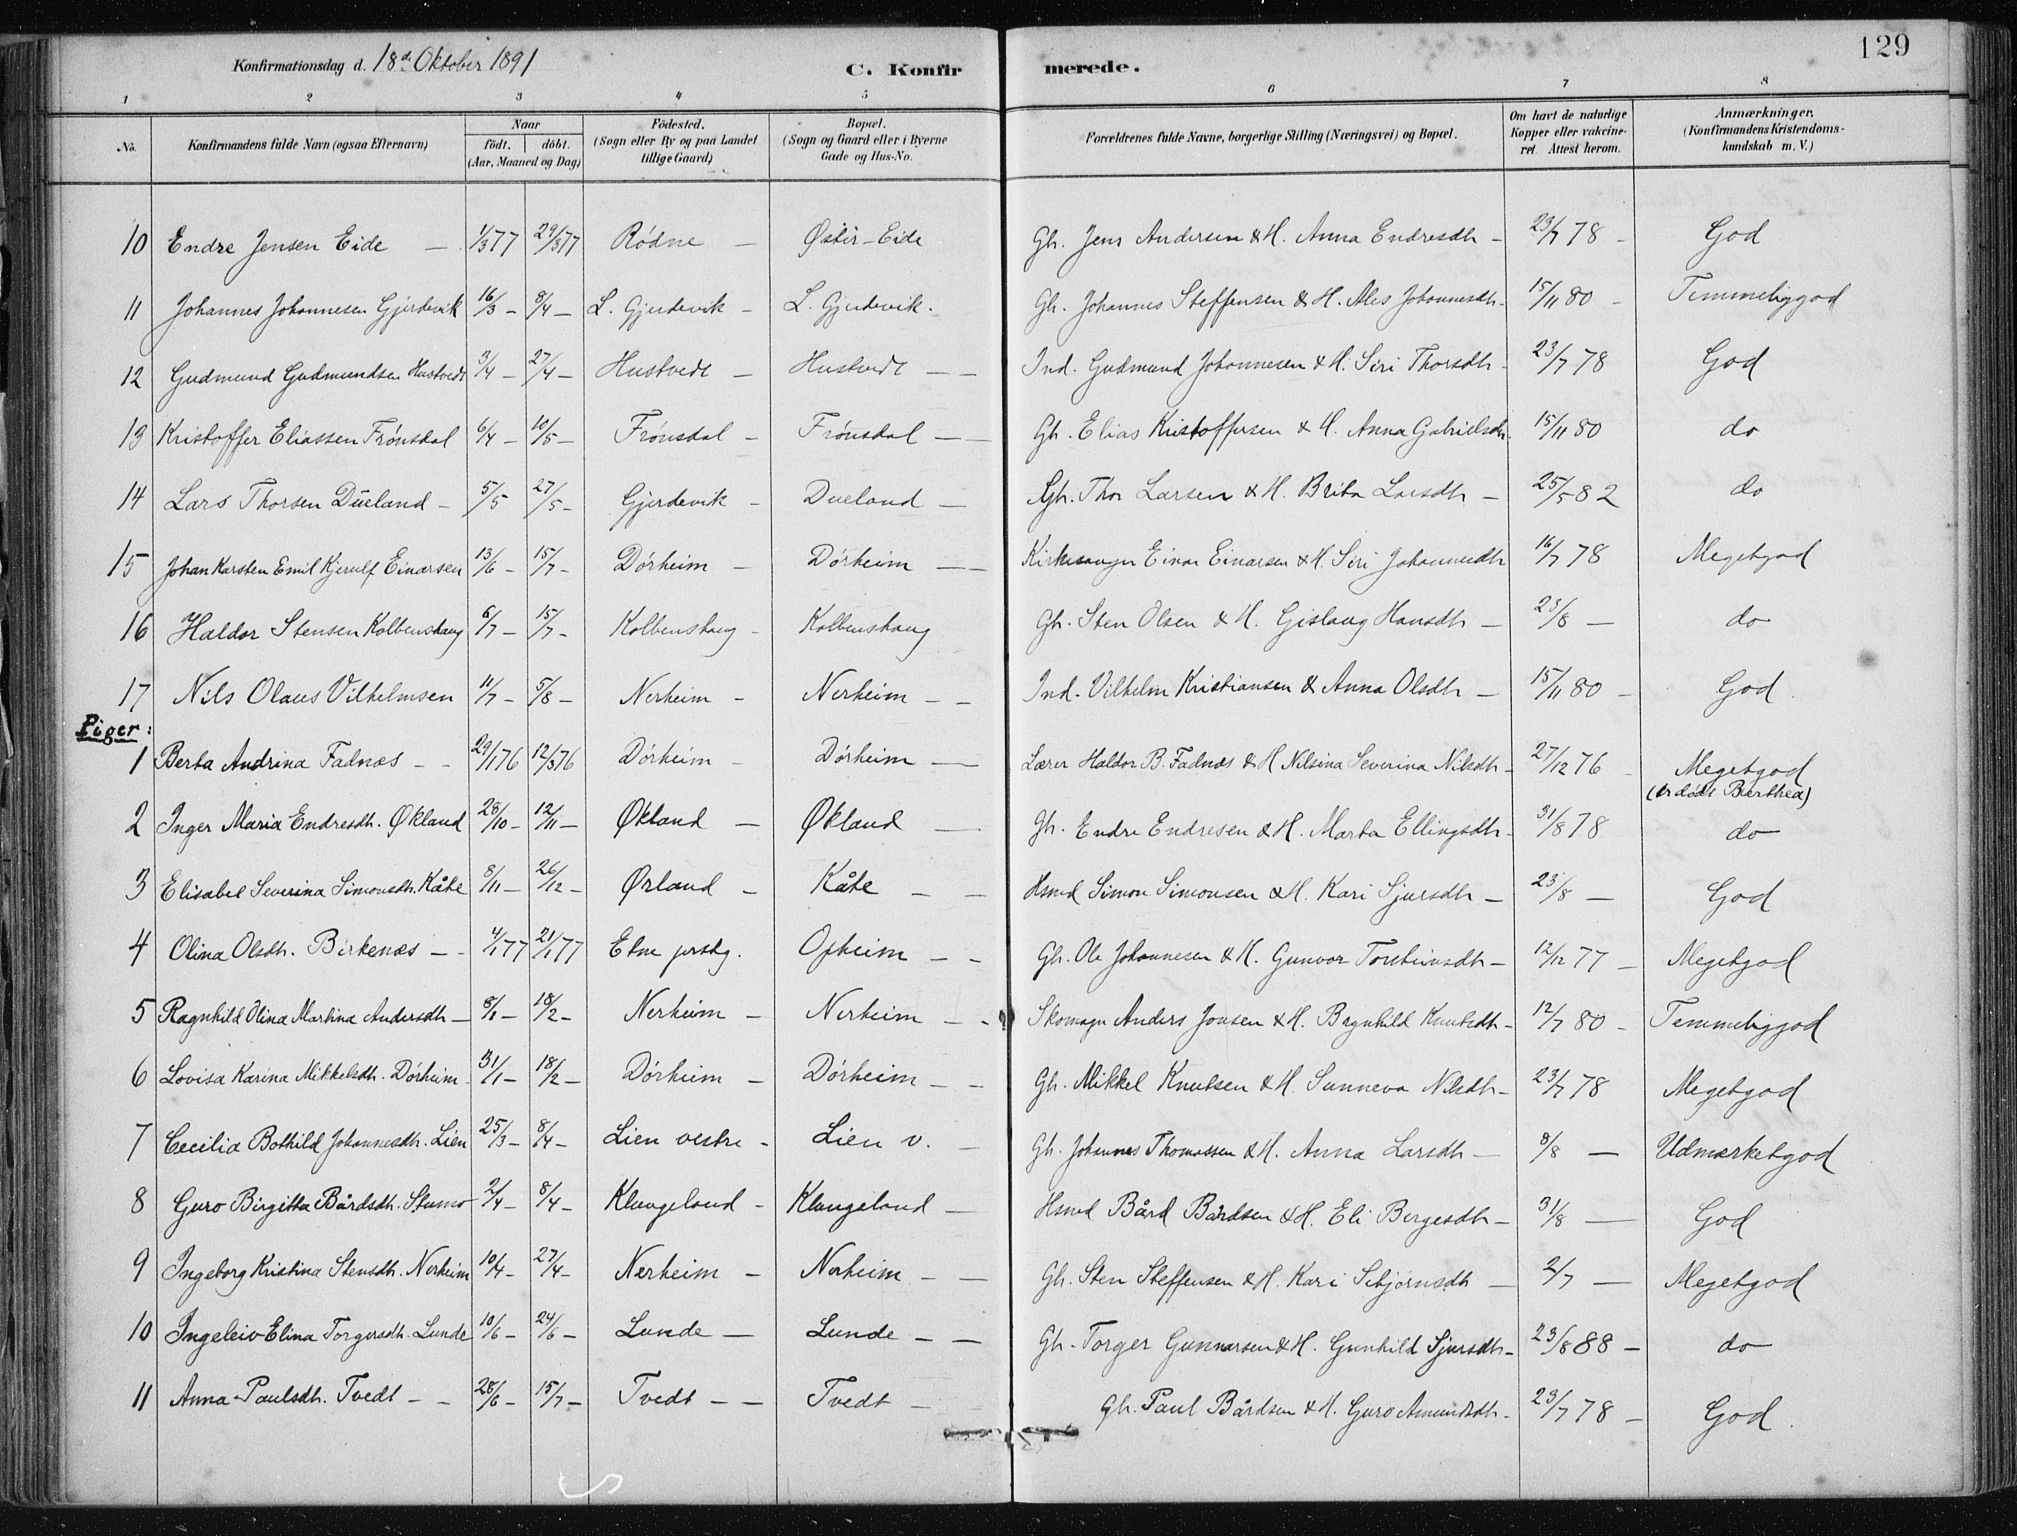 129
Konfirmationsdag d. 18de Oktober 1891 C. Konfirmerede.
1 2 3 4 5 6 7 8
No. Konfirmandens fulde Navn (ogsaa Efternavn) Naar født. døbt. (Aar, Maaned og Dag) Fødested. (Sogn eller By og paa Landet tillige Gaard) Bopæl. (Sogn og Gaard eller i Byerne Gade og Hus-No. Forældrenes fulde Navne, borgerlige Stilling (Næringsvei) og Bopæl. Om havt de naturlige Kopper eller vakcineret. Attest herom. Anmærkninger. (Konfirmandens Kristendomskundskab m. V.)
10 Endre Jensen Eide — 1/3 77 29/3 77 Rødne — Øster-Eide Gh. Jens Andersen & H. Anna Endresdtr — 23/7 78 — God
11 Johannes Johannesen Gjerdevik 16/3 — 8/4 — L. Gjerdevik — L. Gjerdevik. Gh. Johannes Steffensen & H. Ales Johannesdtr — 15/11 80 — Temmeliggod
12 Gudmund Gudmundsen Hustvedt 3/4 — 27/4 — Hustvedt — Hustvedt — — Ind. Gudmund Johannesen & H. Siri Thorsdtr — 23/7 78 God
13 Kristoffer Eliassen Frønsdal 6/4 — 10/5 — Frønsdal — Frønsdal — — Gh. Elias Kristoffersen & H. Anna Gabrielsdtr. 15/11 80 do
14 Lars Thorsen Dueland — 5/5 27/5 — Gjerdevik — Dueland — Gh. Thor Larsen & H. Brita Larsdtr — 25/5 82 do
15 Johan Karsten Emil Kjerulf Einarsen 13/6 — 15/7 — Dörheim — Dörheim — — Kirkesanger Einar Einarsen & H. Siri Johannesdtr 16/7 78 Megetgod
16 Haldor Stensen Kolbenshaug 6/7 — 15/7 — Kolbenshaug — Kolbenshaug Gh. Sten Olsen & H. Gislaug Hansdtr — 23/8 — do
17 Nils Olaus Vilhelmsen 11/7 — 5/8 — Nerheim — Nerheim — — Ind. Vilhelm Kristiansen & Anna Olsdtr — 15/11 80 — God.
Piger:
1 Berta Andrina Fadnæs — — 29/1 76 12/3 76 Dörheim — Dörheim — Lærer Haldor B. Fadnæs & H Nilsina Severina Nilsdtr — 27/12 76 — Megetgod
(er døbt Berthea)
2 Inger Maria Endresdtr. Økland 28/10 — 12/11 — Økland — Økland — Gh. Endre Endresen & H. Marta Ellingsdtr — 31/8 78 do
3 Elisabet Severina Simonsdtr. Kåte 8/11 — 26/12 — Ørland — Kåte — — Hsmd Simon Simonsen & H. Kari Sjursdtr — 23/8 — God
4 Olina Olsdtr. Birkenæs — — 4/1 77 21/1 77 Etne prstg. Opheim — — Gh. Ole Johannesen & H. Gunvor Torsteinsdtr — 12/12 77 — Megetgod
5 Ragnhild Olina Martina Andersdtr — 8/1 — 18/2 — Nerheim — Nerheim — — Skomager Anders Jonsen & H. Brynhild Knutsdtr — 12/7 80 — Temmeliggod
6 Lovisa Karina Mikkelsdtr. Dörheim 31/1 — 18/2 — Dörheim — Dörheim — — Gh. Mikkel Knutsen & H. Sunneva Nilsdtr — 23/7 78 Megetgod
7 Cecilia Bothild Johannesdtr. Lien 25/3 — 8/4 — Lien vestre — Lien v. — Gh. Johannes Thomassen & H. Anna Larsdtr — 8/8 — Udmærketgod
8 Guro Birgitta Bårdsdtr. Stumo 2/4 — 8/4 — Klungeland — Klungeland — Hsmd Bård Bårdsen & H. Eli Bergesdtr — 31/8 — God
9 Ingeborg Kristina Stensdtr. Nerheim 10/4 — 27/4 — Nerheim — Nerheim — — Gh. Sten Steffensen & H. Kari Sebjørnsdtr — 2/7 — Megetgod
10 Ingeleiv Elina Torgersdtr. Lunde 10/6 — 24/6 — Lunde — Lunde — — Gh. Torger Gunnarsen & H. Gunhild Sjursdtr — 23/8 88 — do
11 Anna Paulsdtr. Tvedt — — 28/6 — 15/7 — Tvedt — — Tvedt — Gh. Paul Bårdsen & H. Guro Amundsdtr — 23/7 78 — God.